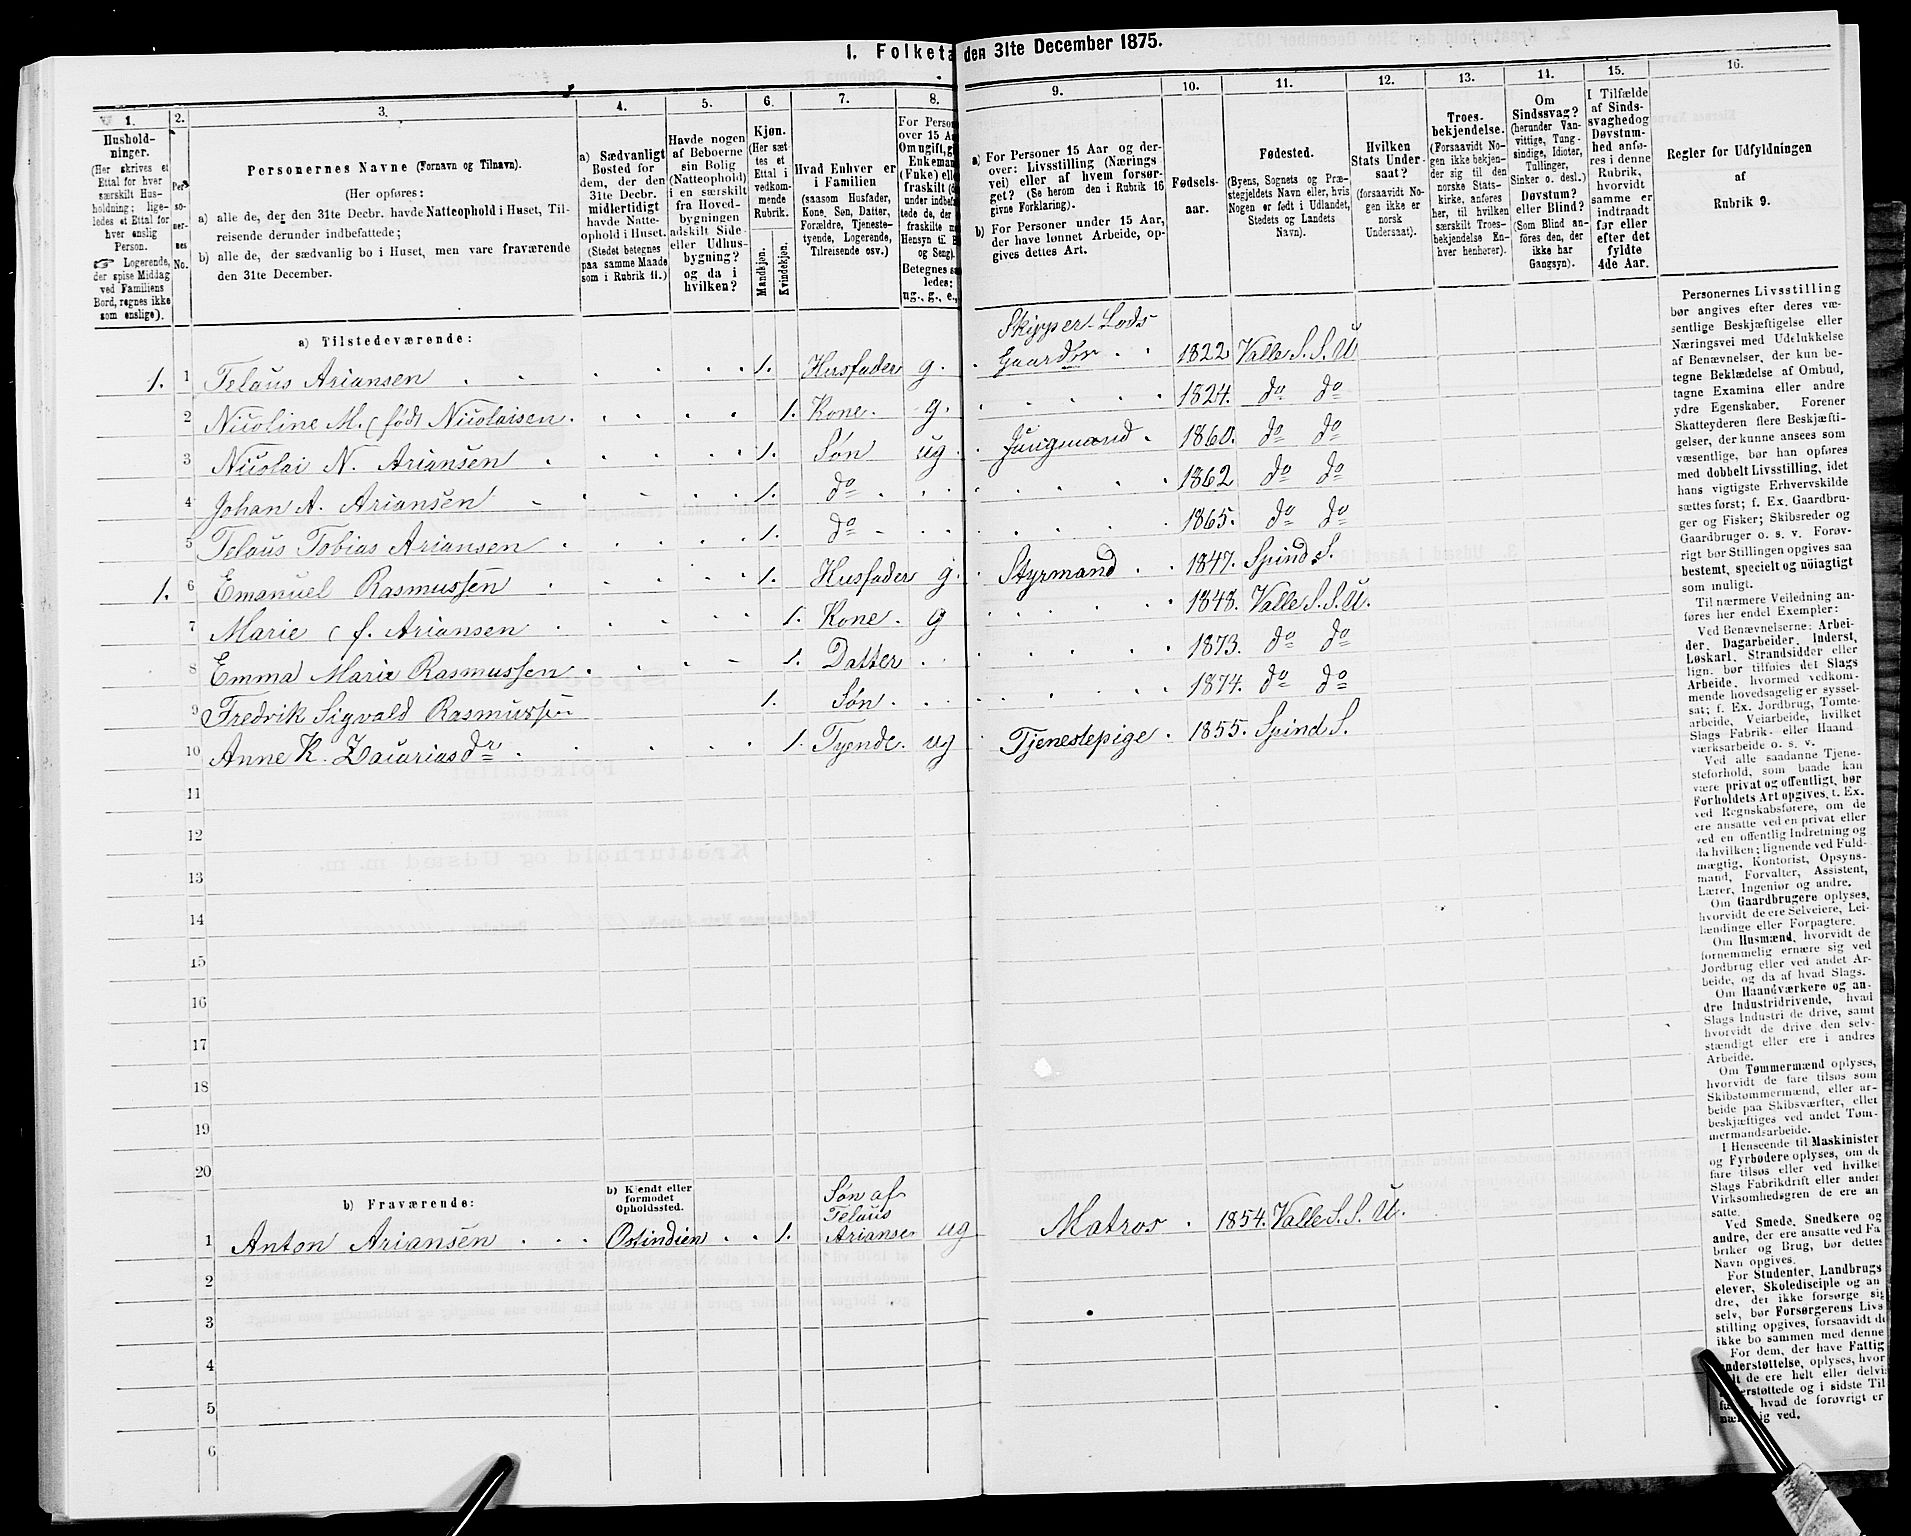 I. Folketæ den 31te December 1875.
1. 2. 3. 4. 5. 6. 7. 8. 9. 10. 11. 12. 13. 14. 15. 16.
Hushold-
ninger.
(Her skrives et
Ettal for hver
særskilt Hus-
holdning; lige-
ledes et Ettal for
hver enslig
Person.
☞ Logerende,
der spise Middag
ved Familiens
Bord, regnes ikke
som enslige).
Per-
so-
ner-
nes
No.
Personernes Navne (Fornavn og Tilnavn).
(Her opføres:
a) alle de, der den 31te Decbr. havde Natteophold i Huset, Til-
reisende derunder indbefattede;
b) alle de, der sædvanlig bo i Huset, men vare fraværende
den 31te December.
a) Sædvanligt
Bosted for
dem, der den
31te Decbr.
midlertidigt
havde Natte-
ophold i Huset.
(Stedet betegnes
paa samme Maade
som i Rubrik 11.)
Havde nogen
af Beboerne
sin Bolig
(Natteophold)
i en særskilt
fra Hoved-
bygningen
adskilt Side-
eller Udhus-
bygning?
og da i
hvilken?
Kjøn.
(Her sæt-
tes et
Ettal i
vedkom-
mende
Rubrik.
Mandkjøn.
Kvindekjøn.
Hvad Enhver er
i Familien
(saasom Husfader,
Kone, Søn, Datter,
Forældre, Tjeneste-
tyende, Logerende,
Tilreisende osv.)
For Person
over 15 Aa
Om ugift, gi
Enkeman
(Fuke) elle
fraskilt (d
under indbefat
tede de, der e
fraskilte m
Hensyn til B
og Seng).
Betegnes sa
ledes:
ug., g., e.,
a) For Personer 15 Aar og der-
over: Livsstilling (Nærings
vei) eller af hvem forsør-
get? (Se herom den i Rubrik 16
givne Forklaring).
b) For Personer under 15 Aar,
der have lønnet Arbeide, op-
gives dettes Art.
Fødsels-
aar.
Fødested.
(Byens, Sognets og Præ-
stegjeldets Navn eller, hvis
Nogen er født i Udlandet,
Stedets og Landets
Navn).
Hvilken
Stats Under-
saat?
(forsaavidt No-
gen ikke er
norsk
Undersaat).
Troes-
bekjendelse.
(Forsaavidt No-
gen ikke bekjen-
der sig til den
norske Stats-
kirke, anføres
her, til hvilken
særskilt Troes-
bekjendelse En-
hver henhører).
Om
Sindssvag?
(herunder Van-
vittige, Tung-
sindige, Idioter,
Tullinger,
Sinker o. desl.)
Døvstum?
eller Blind?
(Som Blind an-
føres den, der
ikke har
Gangsyn).
I Tilfælde
af Sinds-
svaghedog
Døvstum-
hed anfø-
res i denne
Rubrik,
hvorvidt
samme er
indtraadt
før eller
efter det
fyldte
4de Aar.
Regler for Udfyldningen
af
Rubrik 9.
a) Tilstedeværende:
Skipper-Lods
1. 1 Telaus Ariansen 1. Husfader g. Gaardbr 1822 Valle S. S. U
2 Nicoline M. (født Nicolaisen. 1. Kone. g. 1824. do do
3 Nicolai N. Ariansen 1. Søn ug Jungmand 1860. do do
4 Johan A. Ariansen 1. do 1862 do do
5 Telaus Tobias Ariansen 1. do 1865. do do
1. 6 Emanuel Rasmussen 1. Husfader g. Styrmand 1847. Spind S.
7 Marie (f. Ariansen 1. Kone. g 1848. Valle S. S. U.
8 Emma Marie Rasmussen 1. Datter 1873. do do
9 Fredrik Sigvald Rasmussen 1. Søn 1874. do do
10 Anne K. Zacariasdr 1. Tyende. ug Tjenestepige 1855. Spind S.
11
12
13
14
15
16
17
18
19
20
b) Fraværende:
b) Kjendt eller
formodet
Opholdssted.
Søn af
Telaus
1 Anton Ariansen Ostindien 1. Arianse ug Matros 1854. Valle S. S. U.
2
3
4
5
6
Personernes Livsstilling
bør angives efter deres væ-
sentlige Beskjæftigelse eller
Næringsvei med Udelukkelse
af Benævnelser, der kun be-
tegne Beklædelse af Ombud,
tagne Examina eller andre
ydre Egenskaber. Forener
Skatteyderen flere Beskjæfti-
gelser, der kunne ansees som
væsentlige, bør han opføres
med dobbelt Livsstilling, idet
hans vigtigste Erhvervskilde
sættes først; f. Ex. Gaardbru-
ger og Fisker; Skibsreder og
Gaardbruger o. s. v. Forøv-
rigt bør Stillingen opgives saa
bestemt, specielt og nöiagtigt
som muligt.
Til nærmere Veiledning an-
føres her endel Exempler:
Ved Benævnelserne: Arbei-
der, Dagarbeider, Inderst,
Løskarl, Strandsidder eller
lign. bør tilføies det Slags
Arbeide, hvormed vedkom-
mende hovedsagelig er syssel-
sat; f. Ex. Jordbrug, Tømte-
arbeide, Veiarbeide, hvilket
Slags Fabrik- eller Haand
værksarbeide o. s. v.
Ved alle saadanne Tjene-
steforhold, som baade kan
være privat og offentligt, bør
Forholdets Art opgives, t. Ex.
ved Regnskabsførere, om de
ere ansatte ved en privat eller
ved en offentlig Indretning og
da hvilken; lignende ved Fuld-
mægtig, Kontorist, Opsyns-
mand, Forvalter, Assistent,
Lærer, Ingeniør og andre.
Om Gaardbrugere oplyses,
hvorvidt de ere Selveiere, Lei-
lændinge eller Forpagtere.
Om Husmænd, hvorvidt de
fornemmelig ernære sig ved
Jordbrug eller ved andet Ar-
beide, og da af hvad Slags.
Om Haandværkere og an-
dre Industridrivende, hvad
Slags Industri de drive, samt
hvorvidt de drive den selv-
stændigt eller ere i andres
Arbeide.
Om Tømmermænd oplyses,
hvorvidt de fare tilsøs som
Skibstømmermænd, eller ar-
beide paa Skibsværfter, eller
beskjæftiges ved andet Tøm-
mermandsarbeide.
I Henseende til Maskinister
og Fyrbødere oplyses, om de
fare tilsøs eller ved hvilke
Slags Fabrikdrift eller anden
Virksomhedsgren de ere an
satte.
Ved Smede, Snedkere og
andre, der ere ansatte ved Fa
briker og Brug, bør dettes
Navn opgives.
For Studenter, Landbrugs
elever, Skoledisciple og an
dre, der ikke forsørge sig
selv, bør Forsørgerens Livs
stilling opgives, forsaavidt de
ikke bo sammen med denne
For dem, der have Fattig
understøttelse, oplyses, hvor
de ere helt eller delvis
erstøttede og i sidste Til
hvad de forøvrigt er
ig ved.